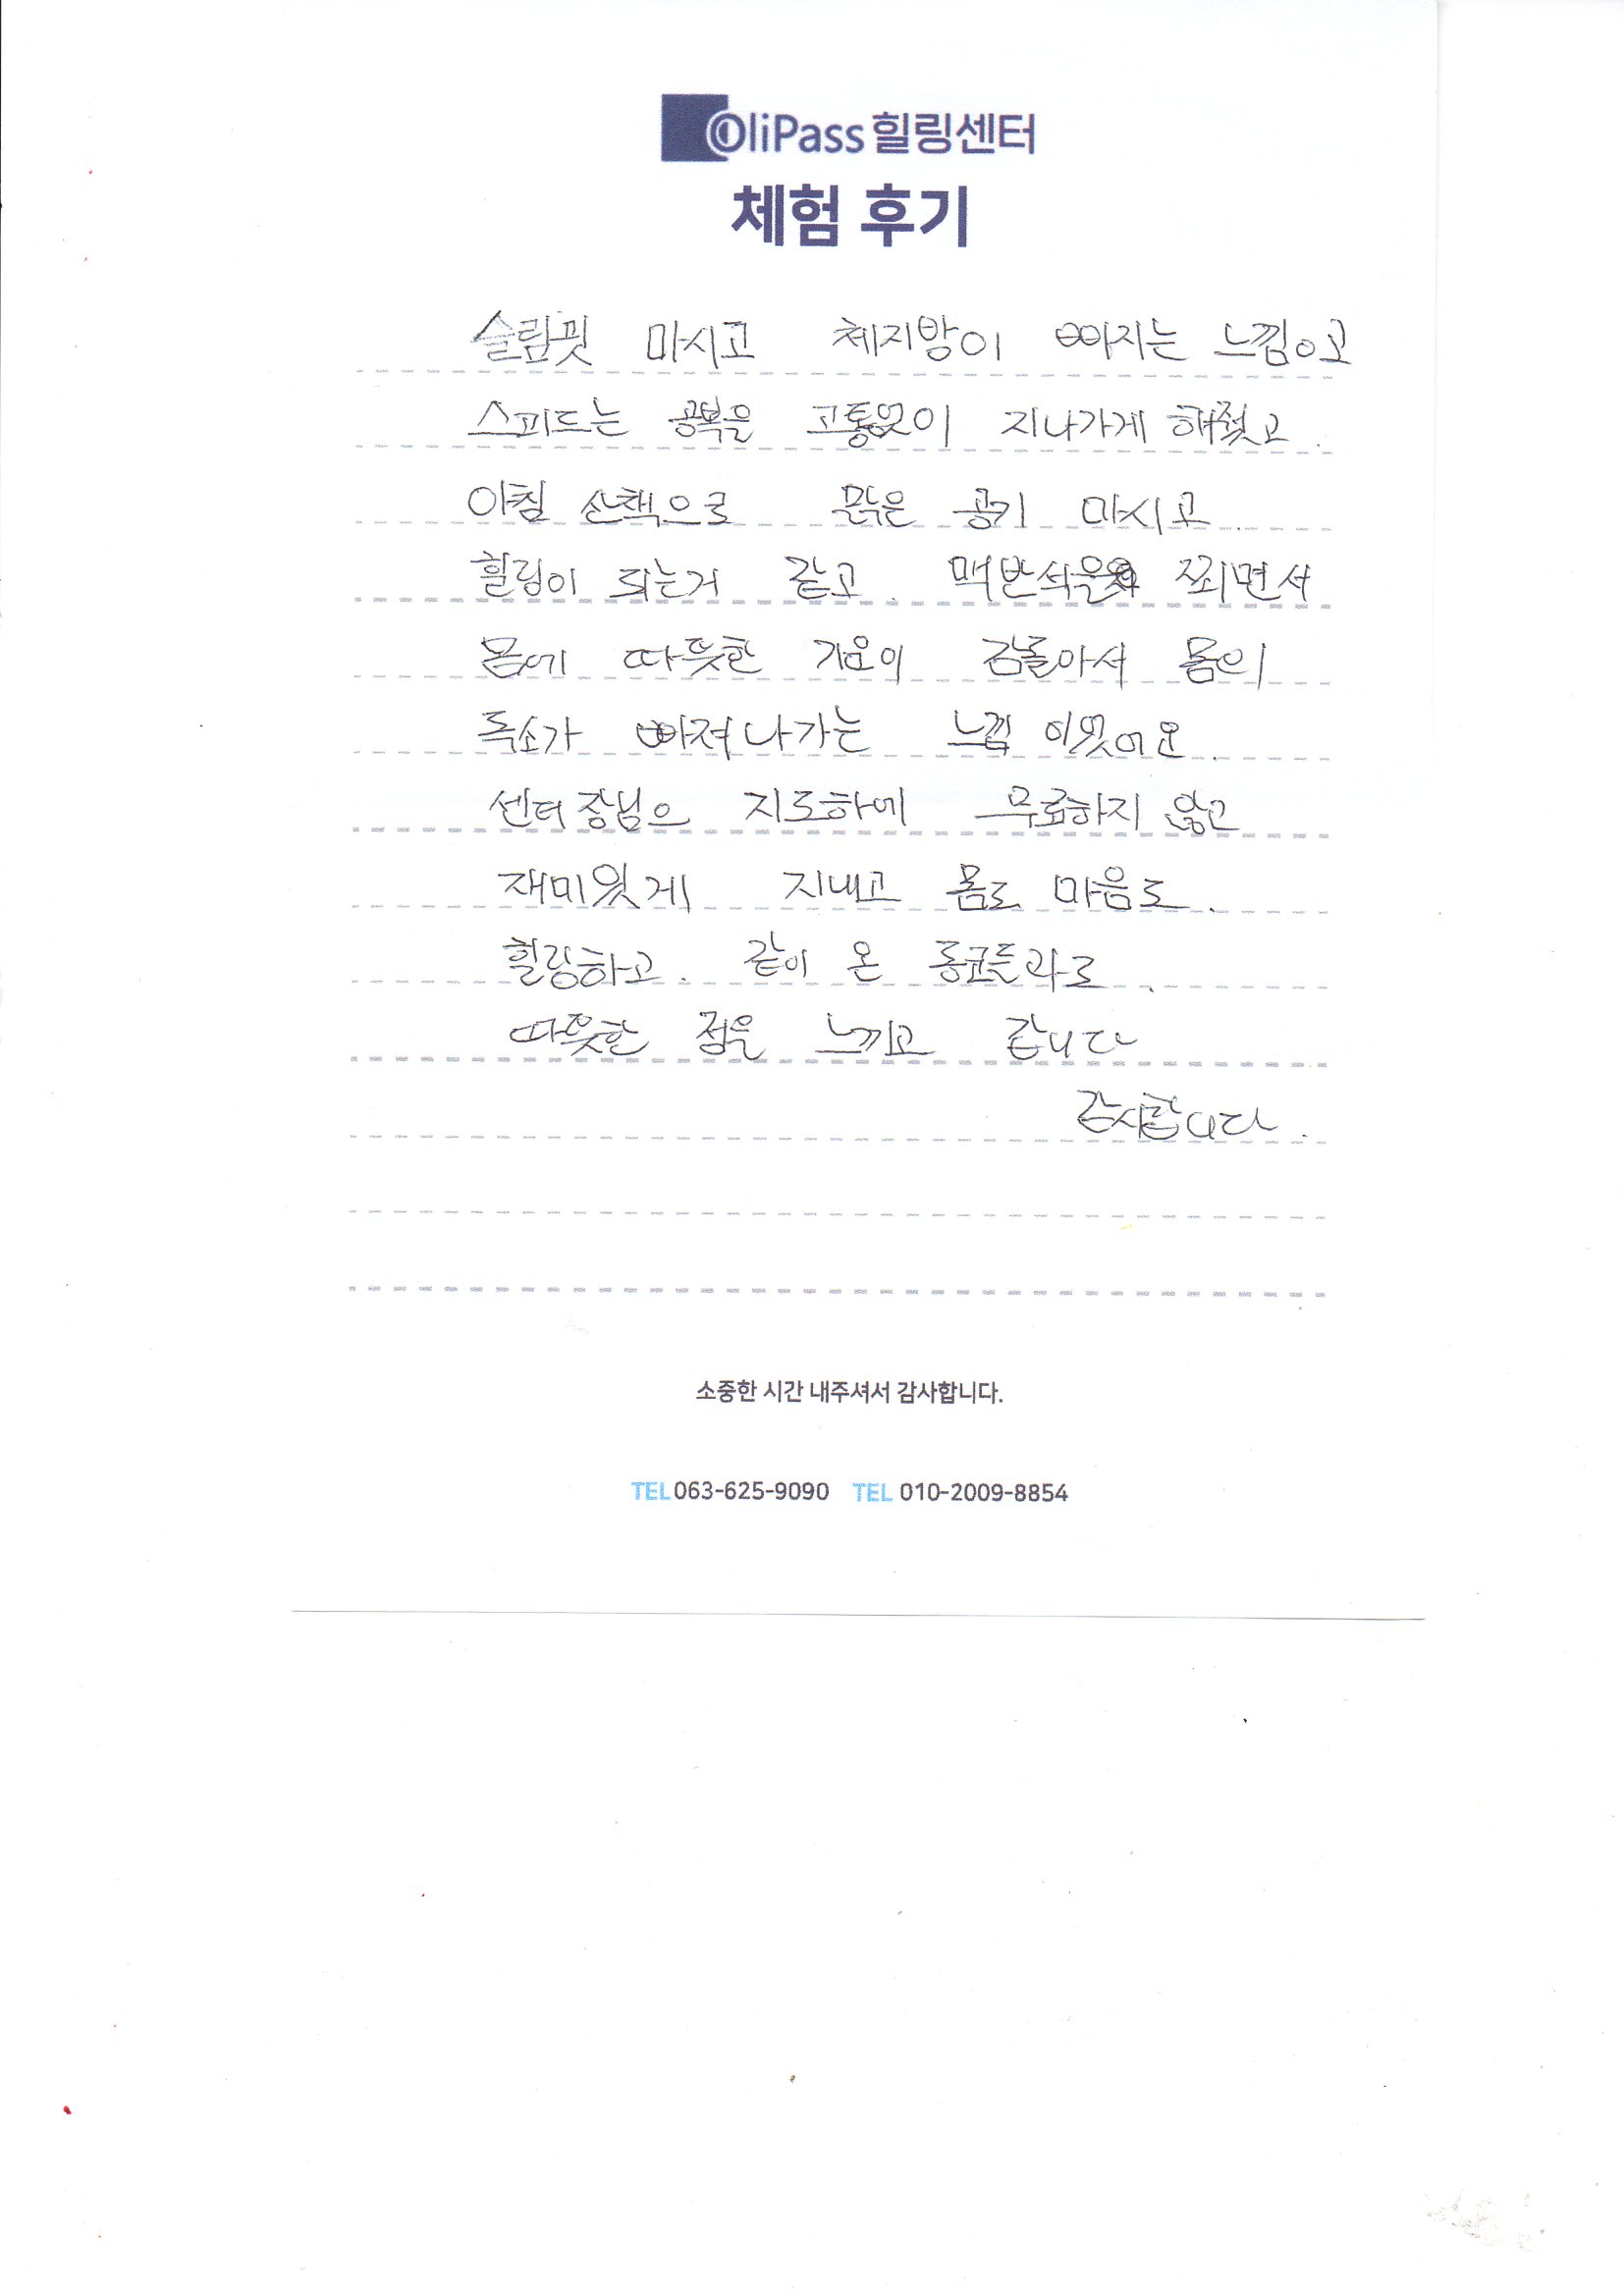 OliPass 힐링센터
체험 후기
슬림핏 마시고 체지방이 빠지는 느낌이고
스피드는 공복을 고통없이 지나가게 해줬고.
아침 산책으로 맑은 공기 마시고.
힐링이 되는거 같고. 맥반석을 쬐면서
몸에 따뜻한 기운이 감돌아서 몸의
독소가 빠져나가는 느낌 이였어요.
센터장님으 지도하에 무료하지 않고
재미있게 지내고 몸도 마음도.
힐링하고. 같이 온 동료들과도.
따뜻한 정을 느끼고 갑니다
감사합니다.
소중한 시간 내주셔서 감사합니다.
TEL 063-625-9090 TEL 010-2009-8854